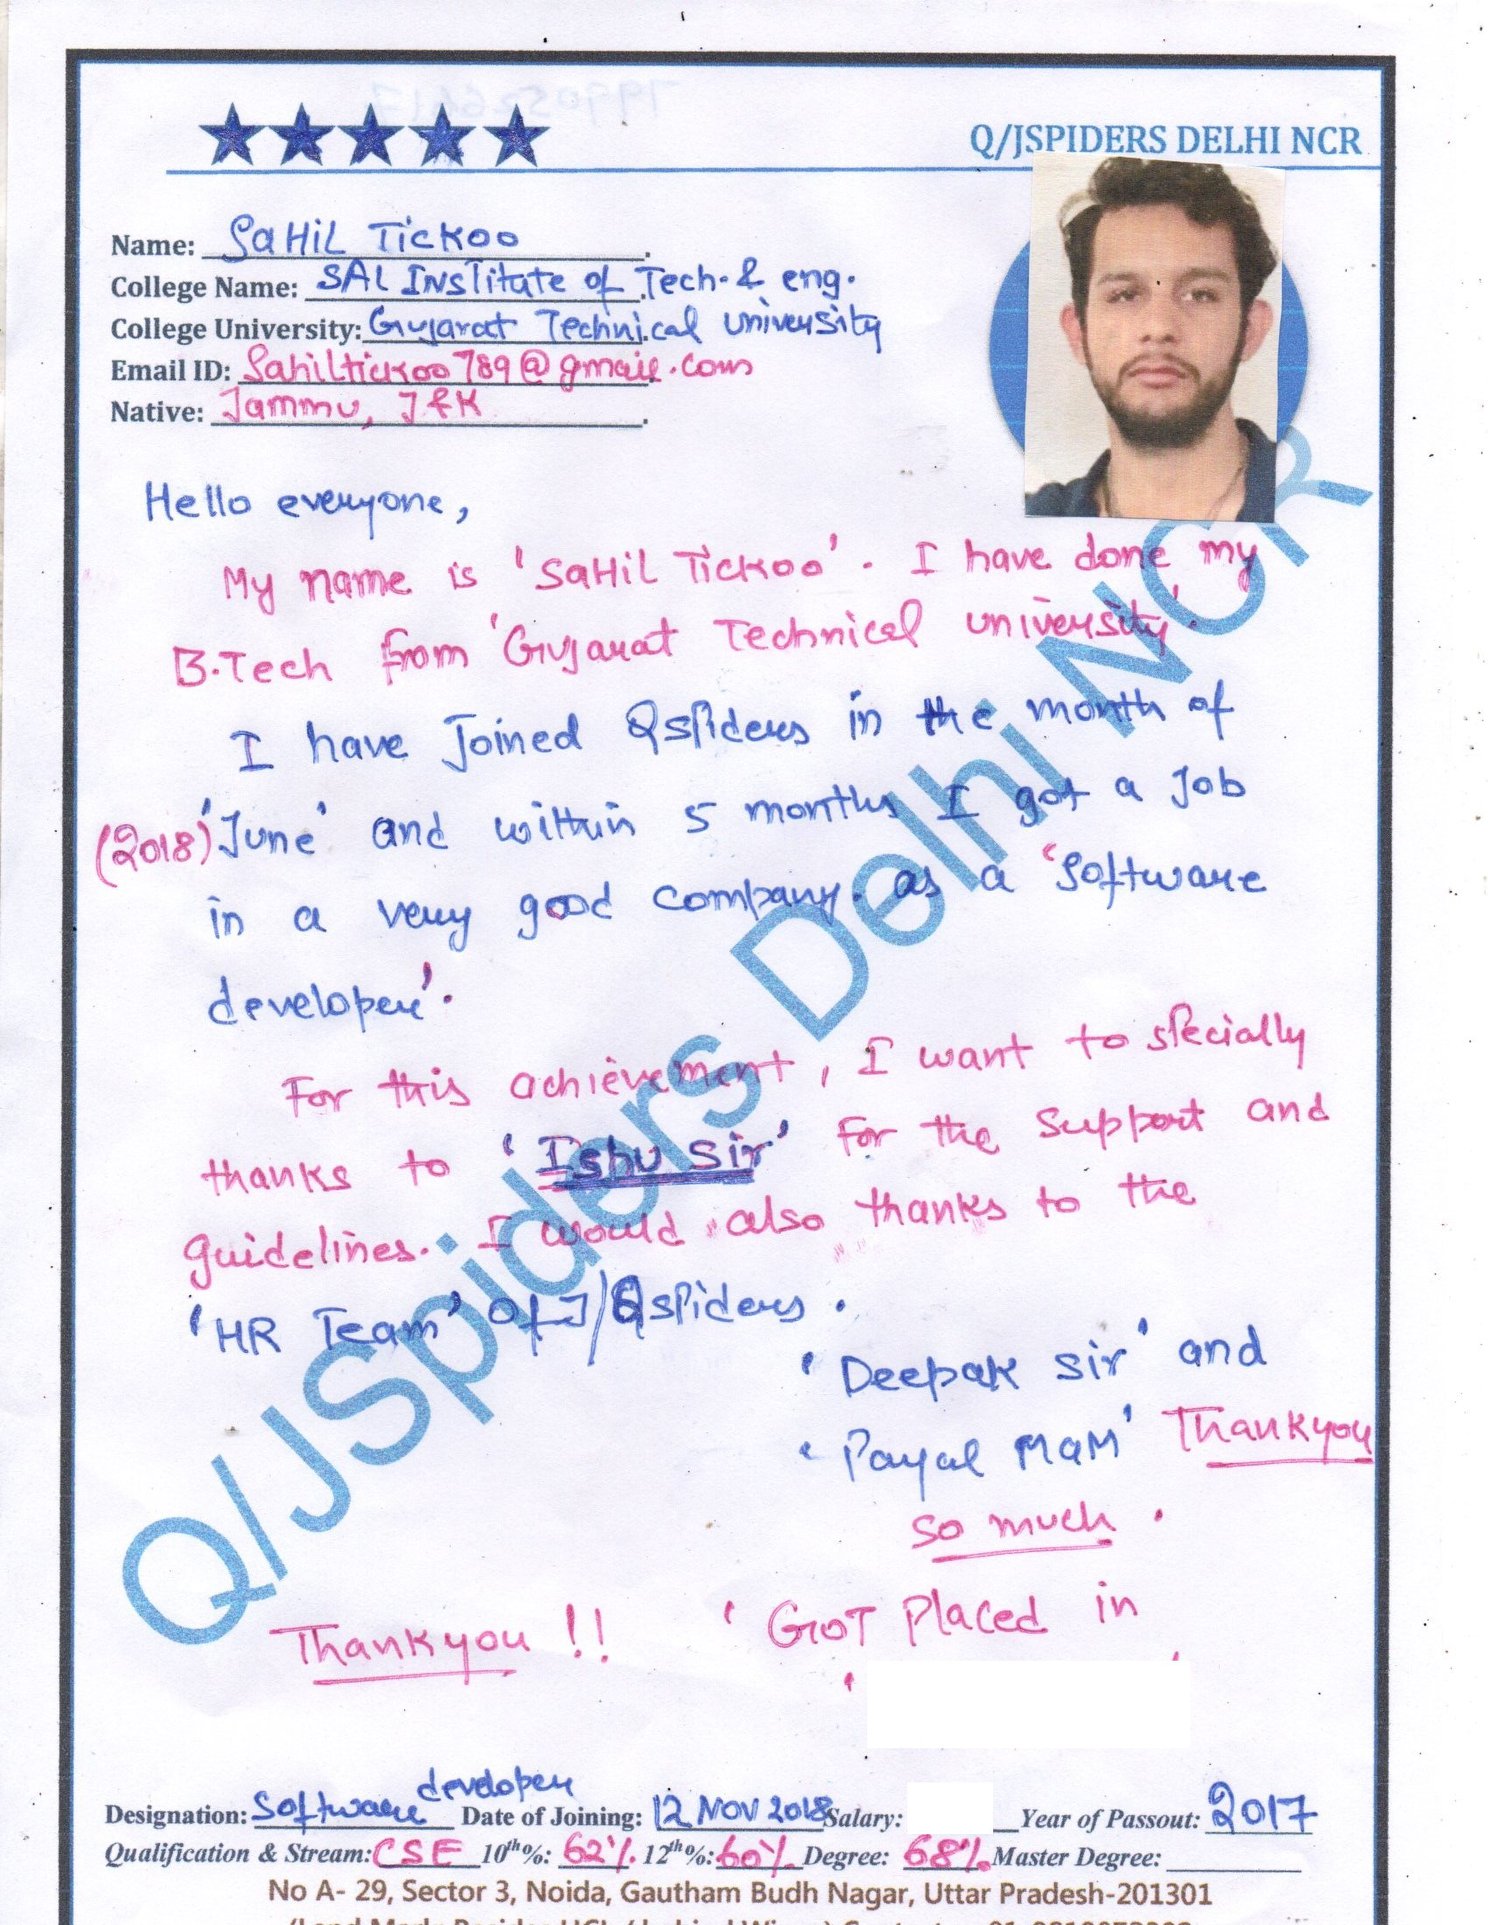 Q/JSPIDERS DELHI NCR
Name: SaHiL TicKoo
College Name: SAL INstitute of Tech. & eng.
College University: Gujarat Technical university
Email ID: Sahiltickoo789@gmail.com
Native: Jammu, J&K
Hello everyone,
My name is 'SaHiL TicKoo'. I have done my
B.Tech from 'Gujarat Technical university'.
I have Joined Qspiders in the month of
(2018) 'June' and within 5 months I got a Job
in a very good company. as a 'Software
developer'.
For this achievement, I want to specially
thanks to 'Ishu Sir' For the Support and
guidelines. I would also thanks to the
'HR Team' Of J/Qspiders.
'Deepak Sir' and
'Payal MaM' Thankyou
so much.
Thankyou !! 'GOT Placed in
' '
Q/JSpiders Delhi NCR
Designation: Software developer Date of Joining: 12 NOV 2018 Salary: Year of Passout: 2017
Qualification & Stream: CSE 10th%: 62% 12th%: 60% Degree: 68% Master Degree:
No A- 29, Sector 3, Noida, Gautham Budh Nagar, Uttar Pradesh-201301